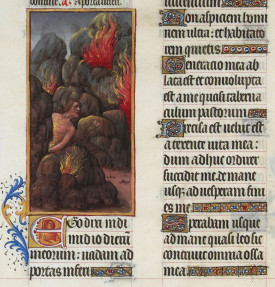 Ego dixi in di
midio dierū
meorum: vadam ad
portas inferi
non aspiciam homi
nem ultra: et habitato
rem quietis
Generacio mea ab
lata est et convoluta
est a me quasi taberna
culum pastorum
Precisa est velut est
a terente vita mea:
dum adhuc ordirer
succidit me. de mane
usq; ad vesperam fini
es me
Sperabam usque
ad mane quasi leo sic
contrivit omnia ossa
mea